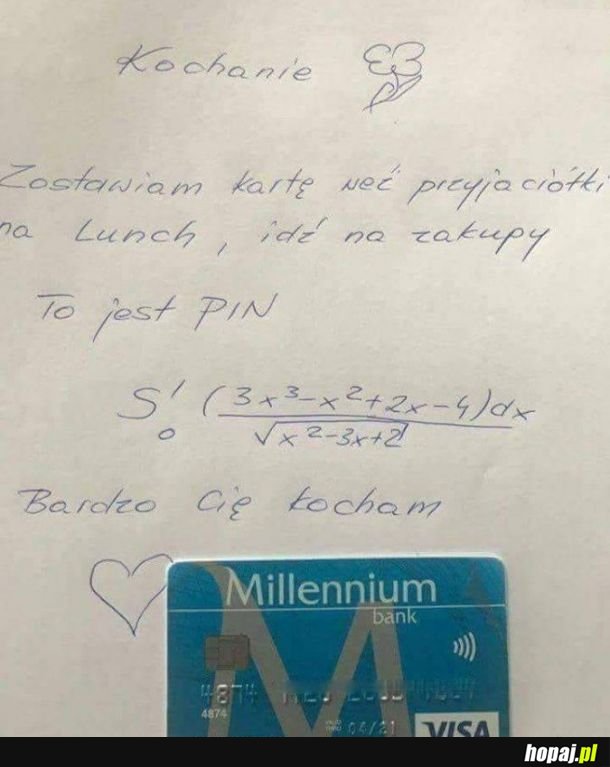 Kochanie
Zostawiam kartę weź przyjaciółki
na Lunch, idź na zakupy
To jest PIN
S¹₀ (3x³-x²+2x-4)dx
√x²-3x+2
Bardzo Cię kocham
Millennium
bank
4874
4874
VALID THRU 04/21
VISA
hopaj.pl